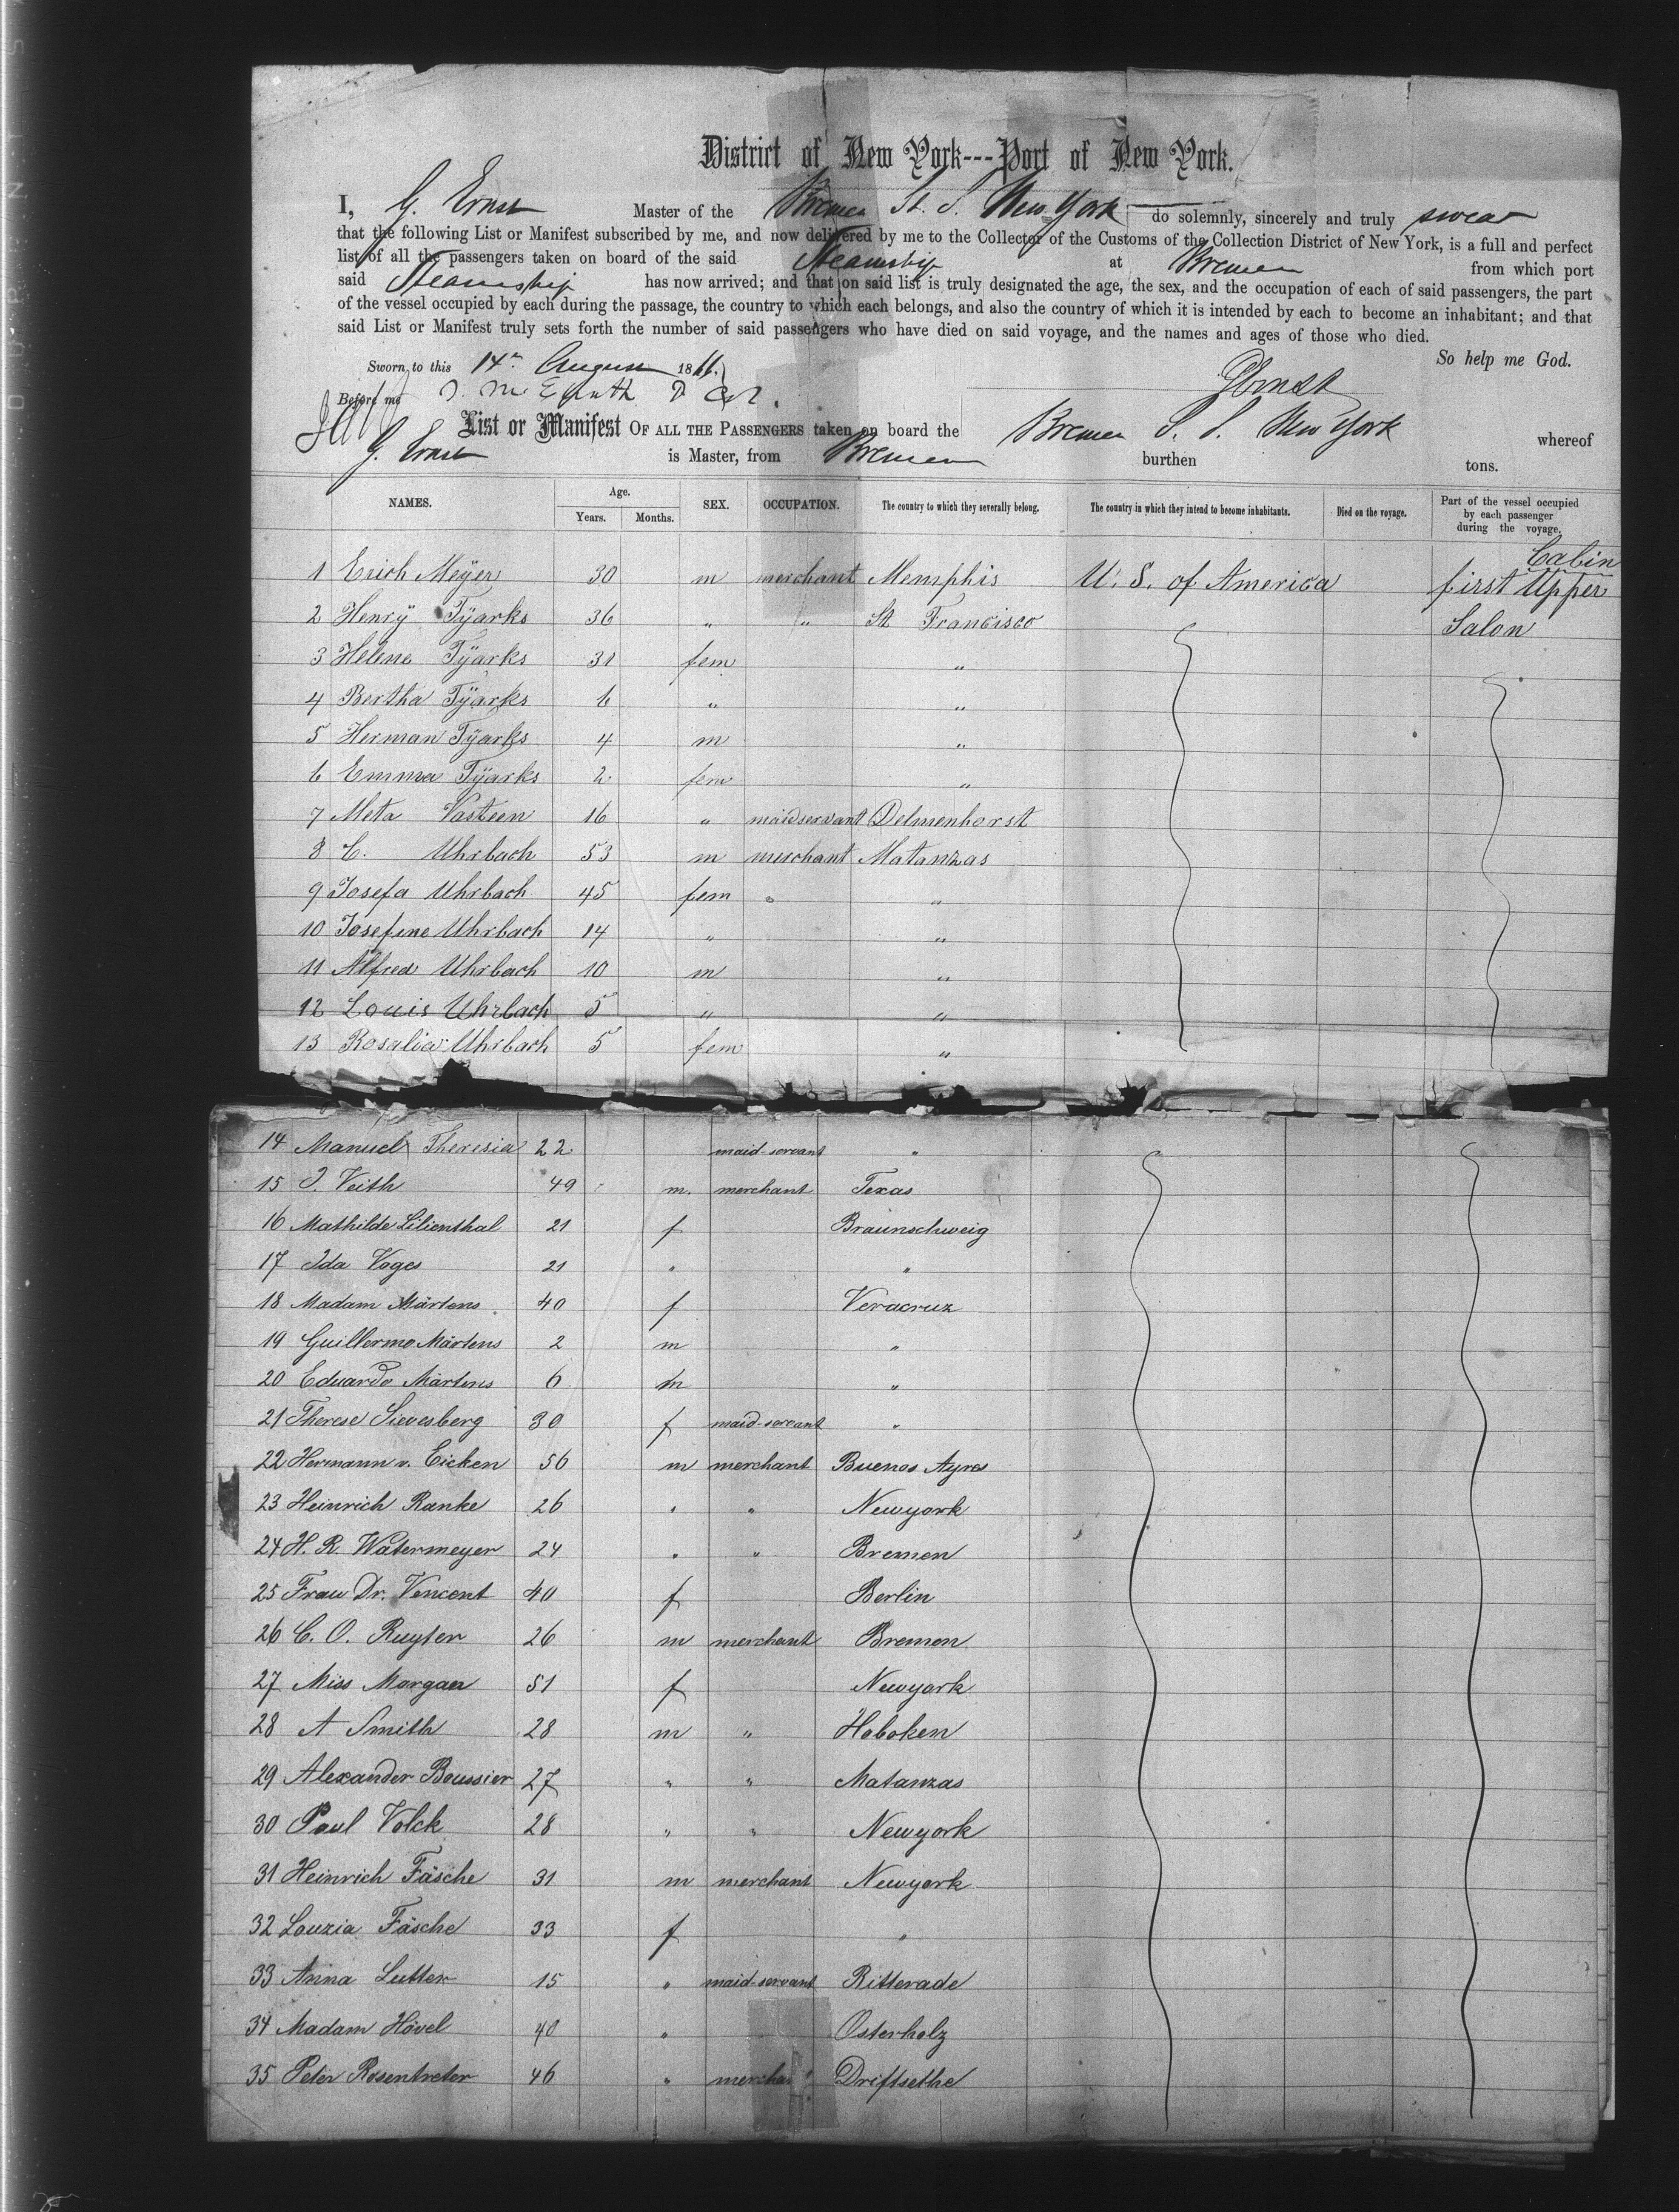 District of New York---Port of New York.
I, G. Ernst Master of the Bremen St. S. New York do solemnly, sincerely and truly swear
that the following List or Manifest subscribed by me, and now delivered by me to the Collector of the Customs of the Collection District of New York, is a full and perfect
list of all the passengers taken on board of the said Steamship at Bremen from which port
said Steamship has now arrived; and that on said list is truly designated the age, the sex, and the occupation of each of said passengers, the part
of the vessel occupied by each during the passage, the country to which each belongs, and also the country of which it is intended by each to become an inhabitant; and that
said List or Manifest truly sets forth the number of said passengers who have died on said voyage, and the names and ages of those who died.
So help me God.
Sworn to this 14th August 1866.
GErnst
Before me
List or Manifest OF ALL THE PASSENGERS taken on board the Bremen S. S. New York whereof
G. Ernst is Master, from Bremen burthen tons.
NAMES. Age. Years. Months. SEX. OCCUPATION. The country to which they severally belong. The country in which they intend to become inhabitants. Died on the voyage. Part of the vessel occupied by each passenger during the voyage.
Cabin
1 Erich Meÿer 30 m merchant Memphis U. S. of America first Upper
2 Henrÿ Tÿarks 36 " " St Francisco Salon
3 Helene Tÿarks 31 fem "
4 Bertha Tÿarks 6 " "
5 Herman Tÿarks 4 m "
6 Emma Tÿarks 2 fem "
7 Meta Vasteen 16 " maidservant Delmenhorst
8 C. Uhrbach 53 m merchant Matanzas
9 Josefa Uhrbach 45 fem " "
10 Josefine Uhrbach 14 " "
11 Alfred Uhrbach 10 m "
12 Louis Uhrbach 5 " "
13 Rosalia Uhrbach 5 fem "
14 Manuel Theresia 22 maid-servant "
15 J. Veith 49 m. merchant Texas
16 Mathilde Lilienthal 21 f Braunschweig
17 Ida Voges 21 " "
18 Madam Märtens 40 f Veracruz
19 Guillermo Märtens 2 m "
20 Eduardo Märtens 6 m "
21 Therese Sievesberg 30 f maid-servant "
22 Hermann v. Eicken 56 m merchant Buenos Ayres
23 Heinrich Ranke 26 " " Newyork
24 H. R. Watermeyer 24 " " Bremen
25 Frau Dr. Vencent 40 f Berlin
26 C. O. Ruyter 26 m merchant Bremen
27 Miss Morgan 51 f Newyork
28 A Smith 28 m " Hoboken
29 Alexander Boussier 27 " " Matanzas
30 Paul Volck 28 " " Newyork
31 Heinrich Fäsche 31 m merchant Newyork
32 Louzia Fäsche 33 f "
33 Anna Lutter 15 " maid-servant Ritterade
34 Madam Hövel 40 " Osterholz
35 Peter Rosentreter 46 " merchant Driftsethe